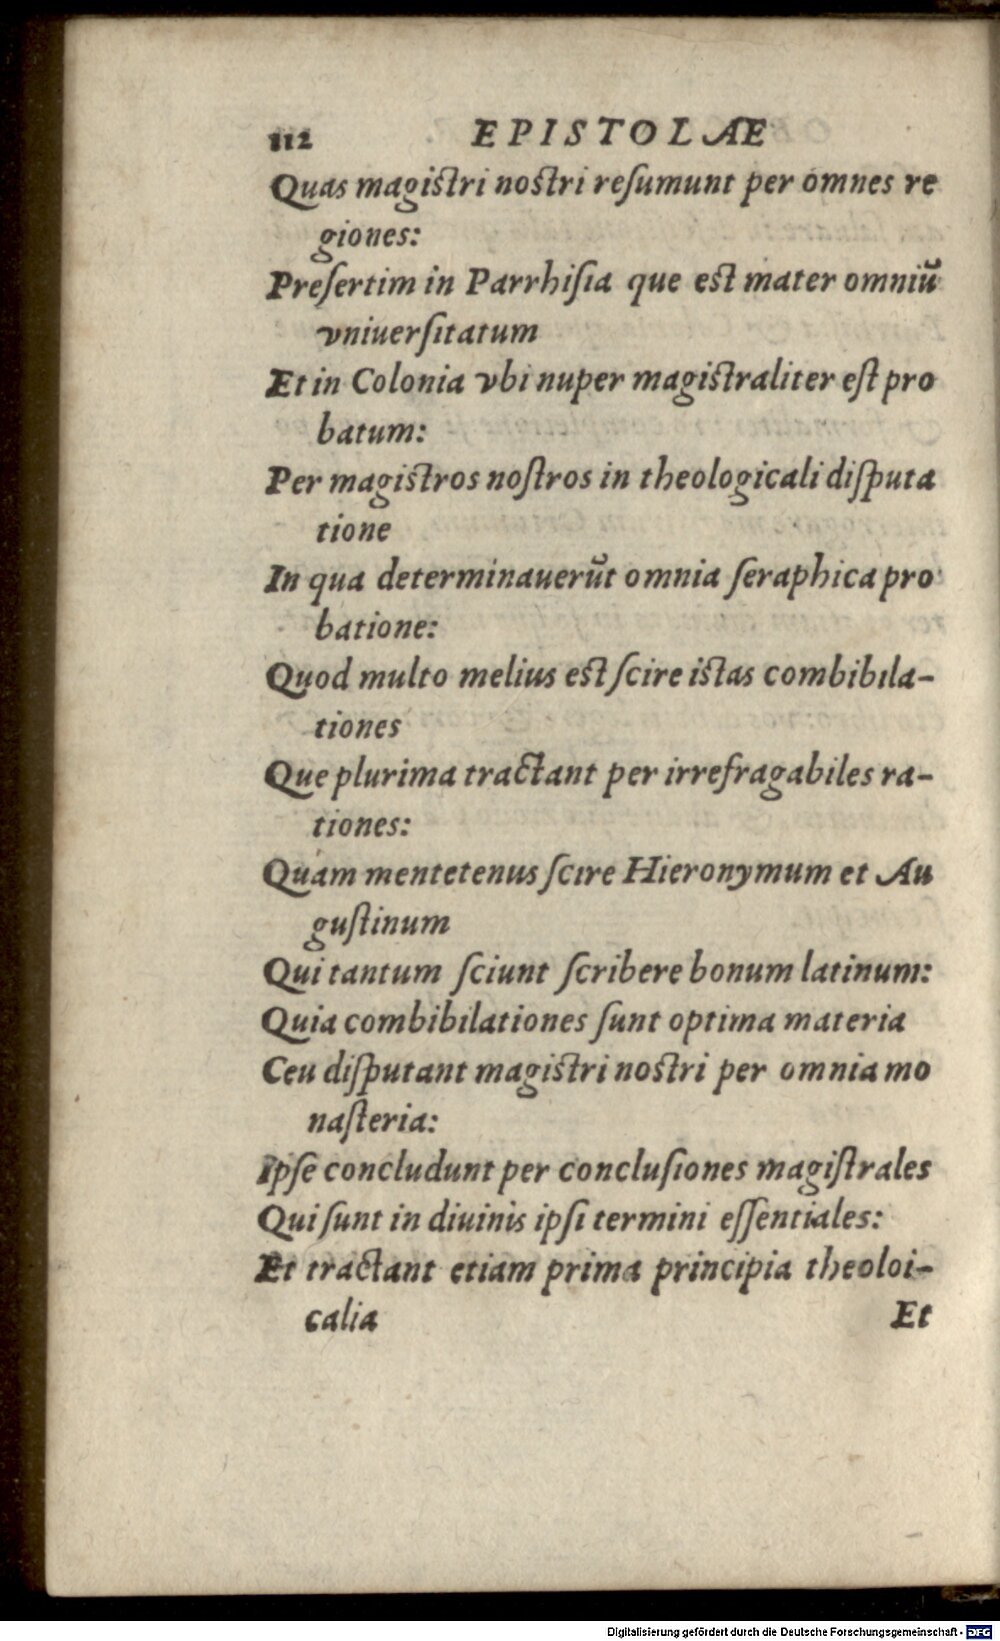 112 EPISTOLÆ
Quas magistri nostri reſumunt per omnes re
giones:
Preſertim in Parrhiſia que est mater omniū
vniuerſitatum
Et in Colonia vbi nuper magistraliter eſt pro
batum:
Per magistros noſtros in theologicali diſputa
tione
In qua determinauerūt omnia ſeraphica pro
batione:
Quod multo melius est ſcire istas combibila-
tiones
Que plurima tractant per irrefragabiles ra-
tiones:
Quam mentetenus ſcire Hieronymum et Au
guſtinum
Qui tantum ſciunt ſcribere bonum latinum:
Quia combibilationes ſunt optima materia
Ceu diſputant magistri nostri per omnia mo
naſteria:
Ipſe concludunt per concluſiones magiſtrales
Qui ſunt in diuinis ipſi termini eſſentiales:
Et tractant etiam prima principia theoloi-
calia Et
Digitalisierung gefördert durch die Deutsche Forschungsgemeinschaft - DFG